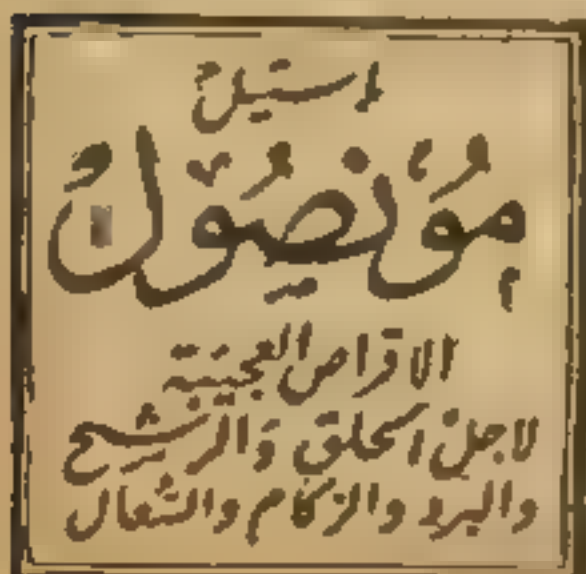 إستيل
مُونصُول
الاقراص العجيبة
لاجل الحلق والرشيح
والبرد والزكام والسُعال